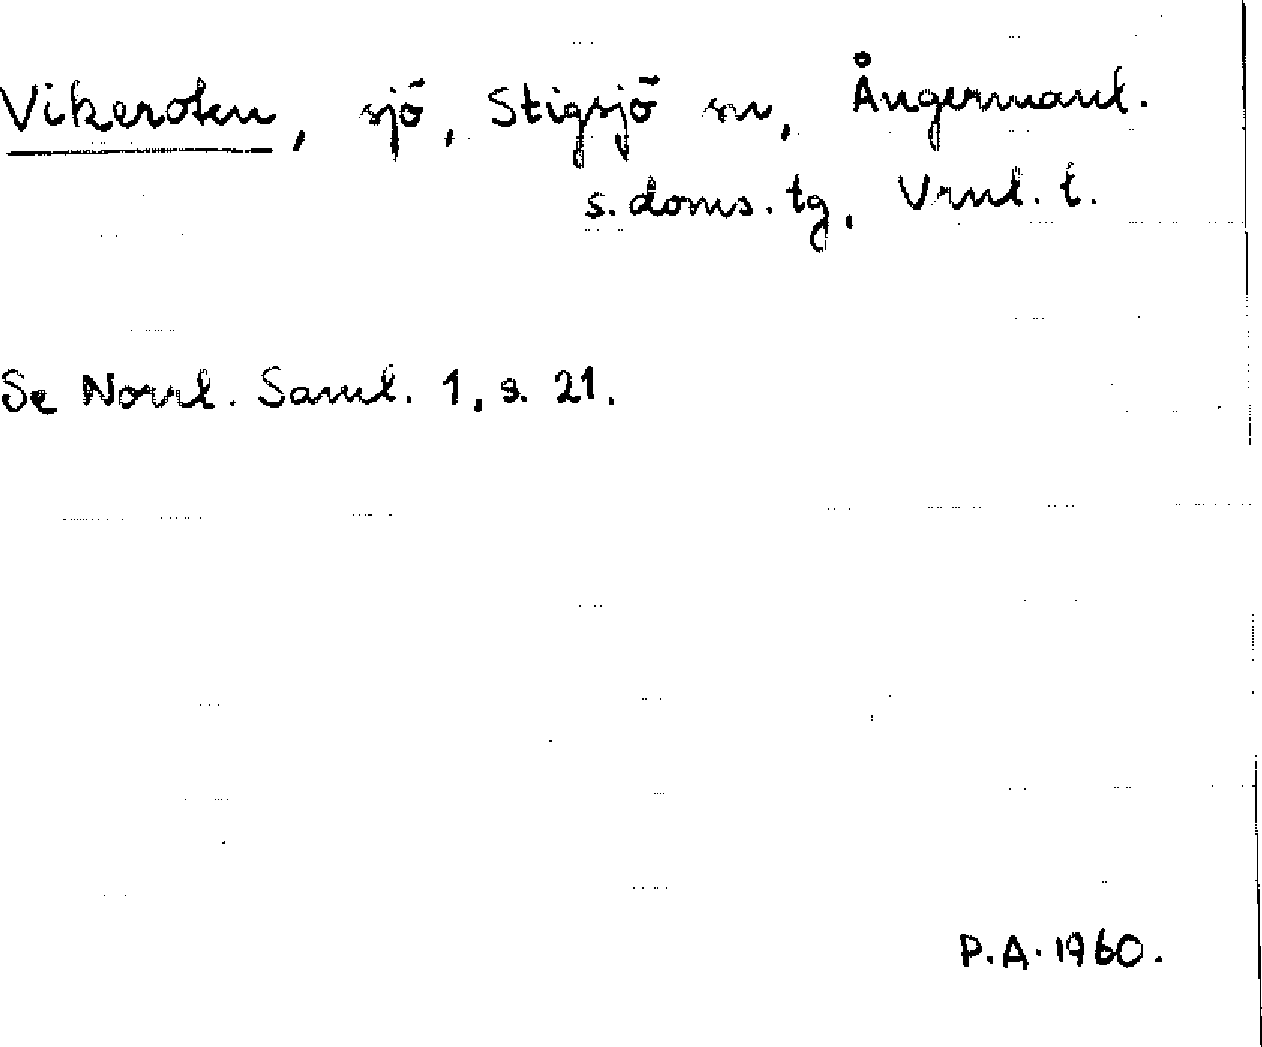 Vikeroten, sjö, Stigsjö sn, Ångermanl.
s. doms. tg, Vrnl. l.
Se Norrl. Saml. 1, s. 21.
P.A. 1960.